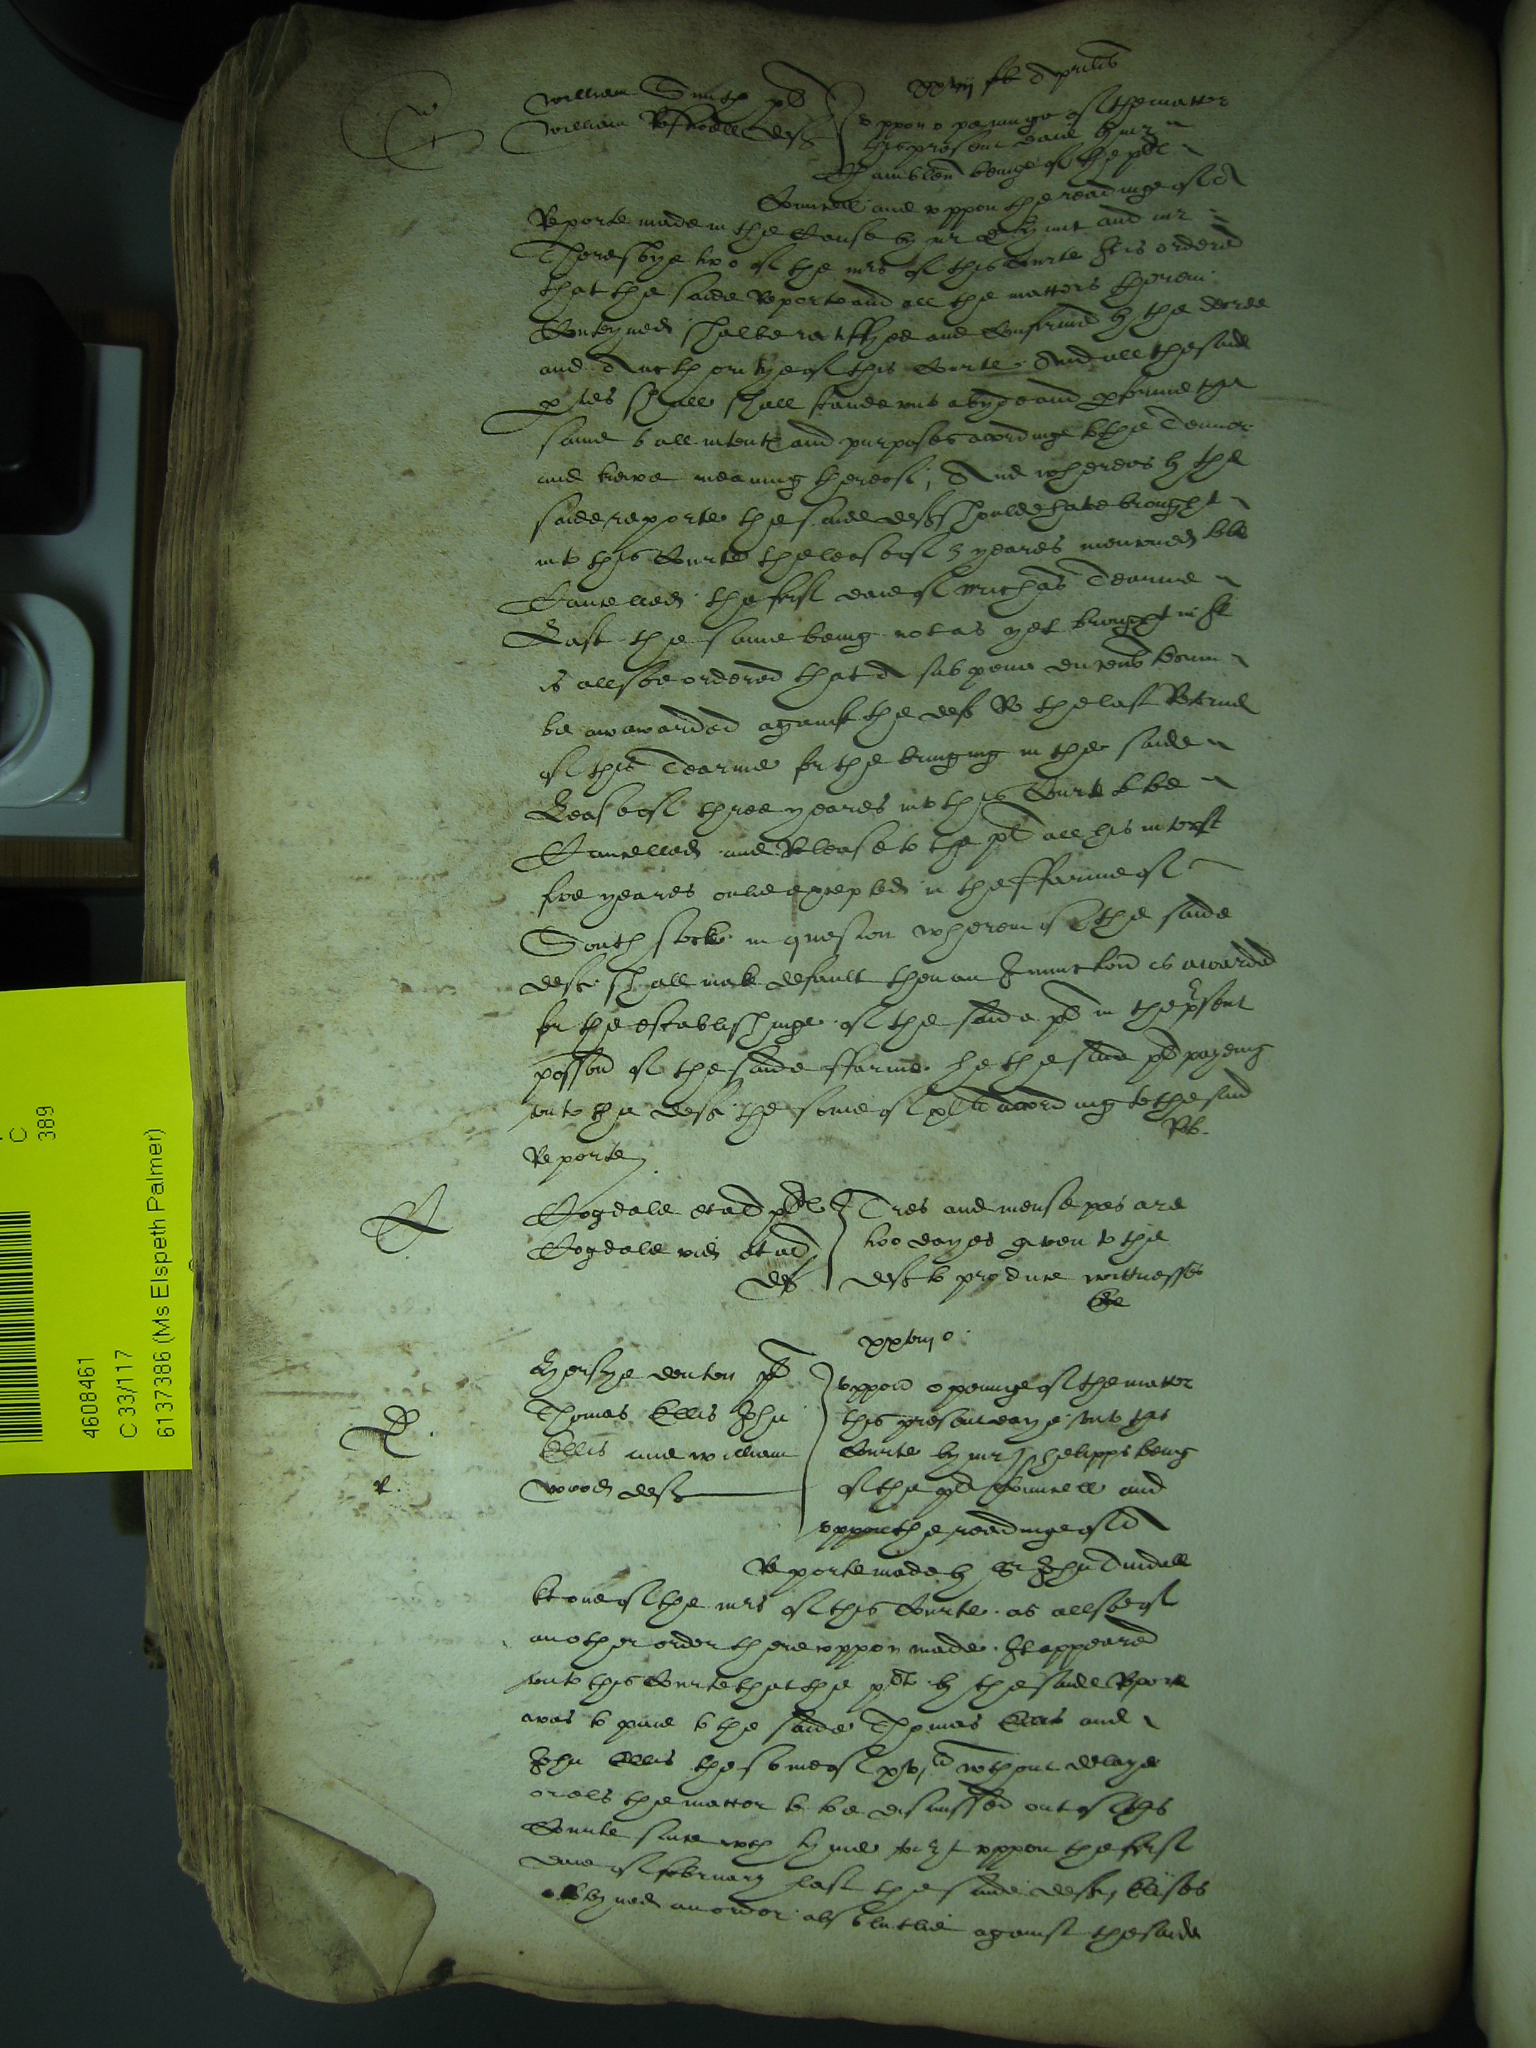 William Smith pl
William def
xxviij die Aprilis
uppon openinge of the matter
this present daie by mr
beinge of the pl
Councell and uppon the readinge of A
Reporte made in the Cause by mr and mr
Thoresbye two of the mrs of this Courte It is ordered
that the saide Reporte and all the matters therein
Conteyned shalbe ratiffyed and Confirmed by the decree
and Aucthoritye of this Courte And all the said
pties shall shall stande unto abyde and pforme the
same to all intents and purposes accordinge to the Tennor
and trewe meaning thereof, And whereas by the
saide reporte the saide def shoulde have brought
into this Courte the lease of 3 yeares mencioned to be
Cancelled the first daie of Mychas Tearme
Last the same being not as yet brought in It
is allsoe ordered that A subpena ducens tecum
be awwarded against the def R the last Retorne
of this Tearme for the bringing in the saide
Lease of three yeares into this Courte to be
Cancelled and Release to the pl all his interest
five yeares onlie excepted in the fferme of
South stocke in question wherein if the saide
def shall make default then an Iniunction is awarded
for the establishinge of the saide pl in the psent
possion of the saide fferme he the saide pl payeing
unto the def the some of xl li according to the said
Reporte
Cogdale et al pl
Cogdale vid et al
def
Tres and mense pas are
two dayes given to the
def to produce wittnesses
xxviij o
denton pl
Thomas Ellis John
Ellis and William
Wood def
uppon openinge of the matter
this present daye unto the
Courte by mr Phelipps being
of the pl Councell and
uppon the readinge of A
Reporte made by Sr John Tindall
kt one of the mrs of this Courte as allsoe of
another order thereuppon made It appeared
unto this Courte that the pl by the saide Reporte
was to paie to the saide Thomas Ellis and
John Ellis the some of xv li without delaye
or els the matter to be dismissed out of this
Courte since wch tyme viz uppon the first
daie of february last the saide def Ellises
obteyned an order absolutlie against the saide
4608461
C 33/117
6137386 (Ms Elspeth Palmer)
C
389